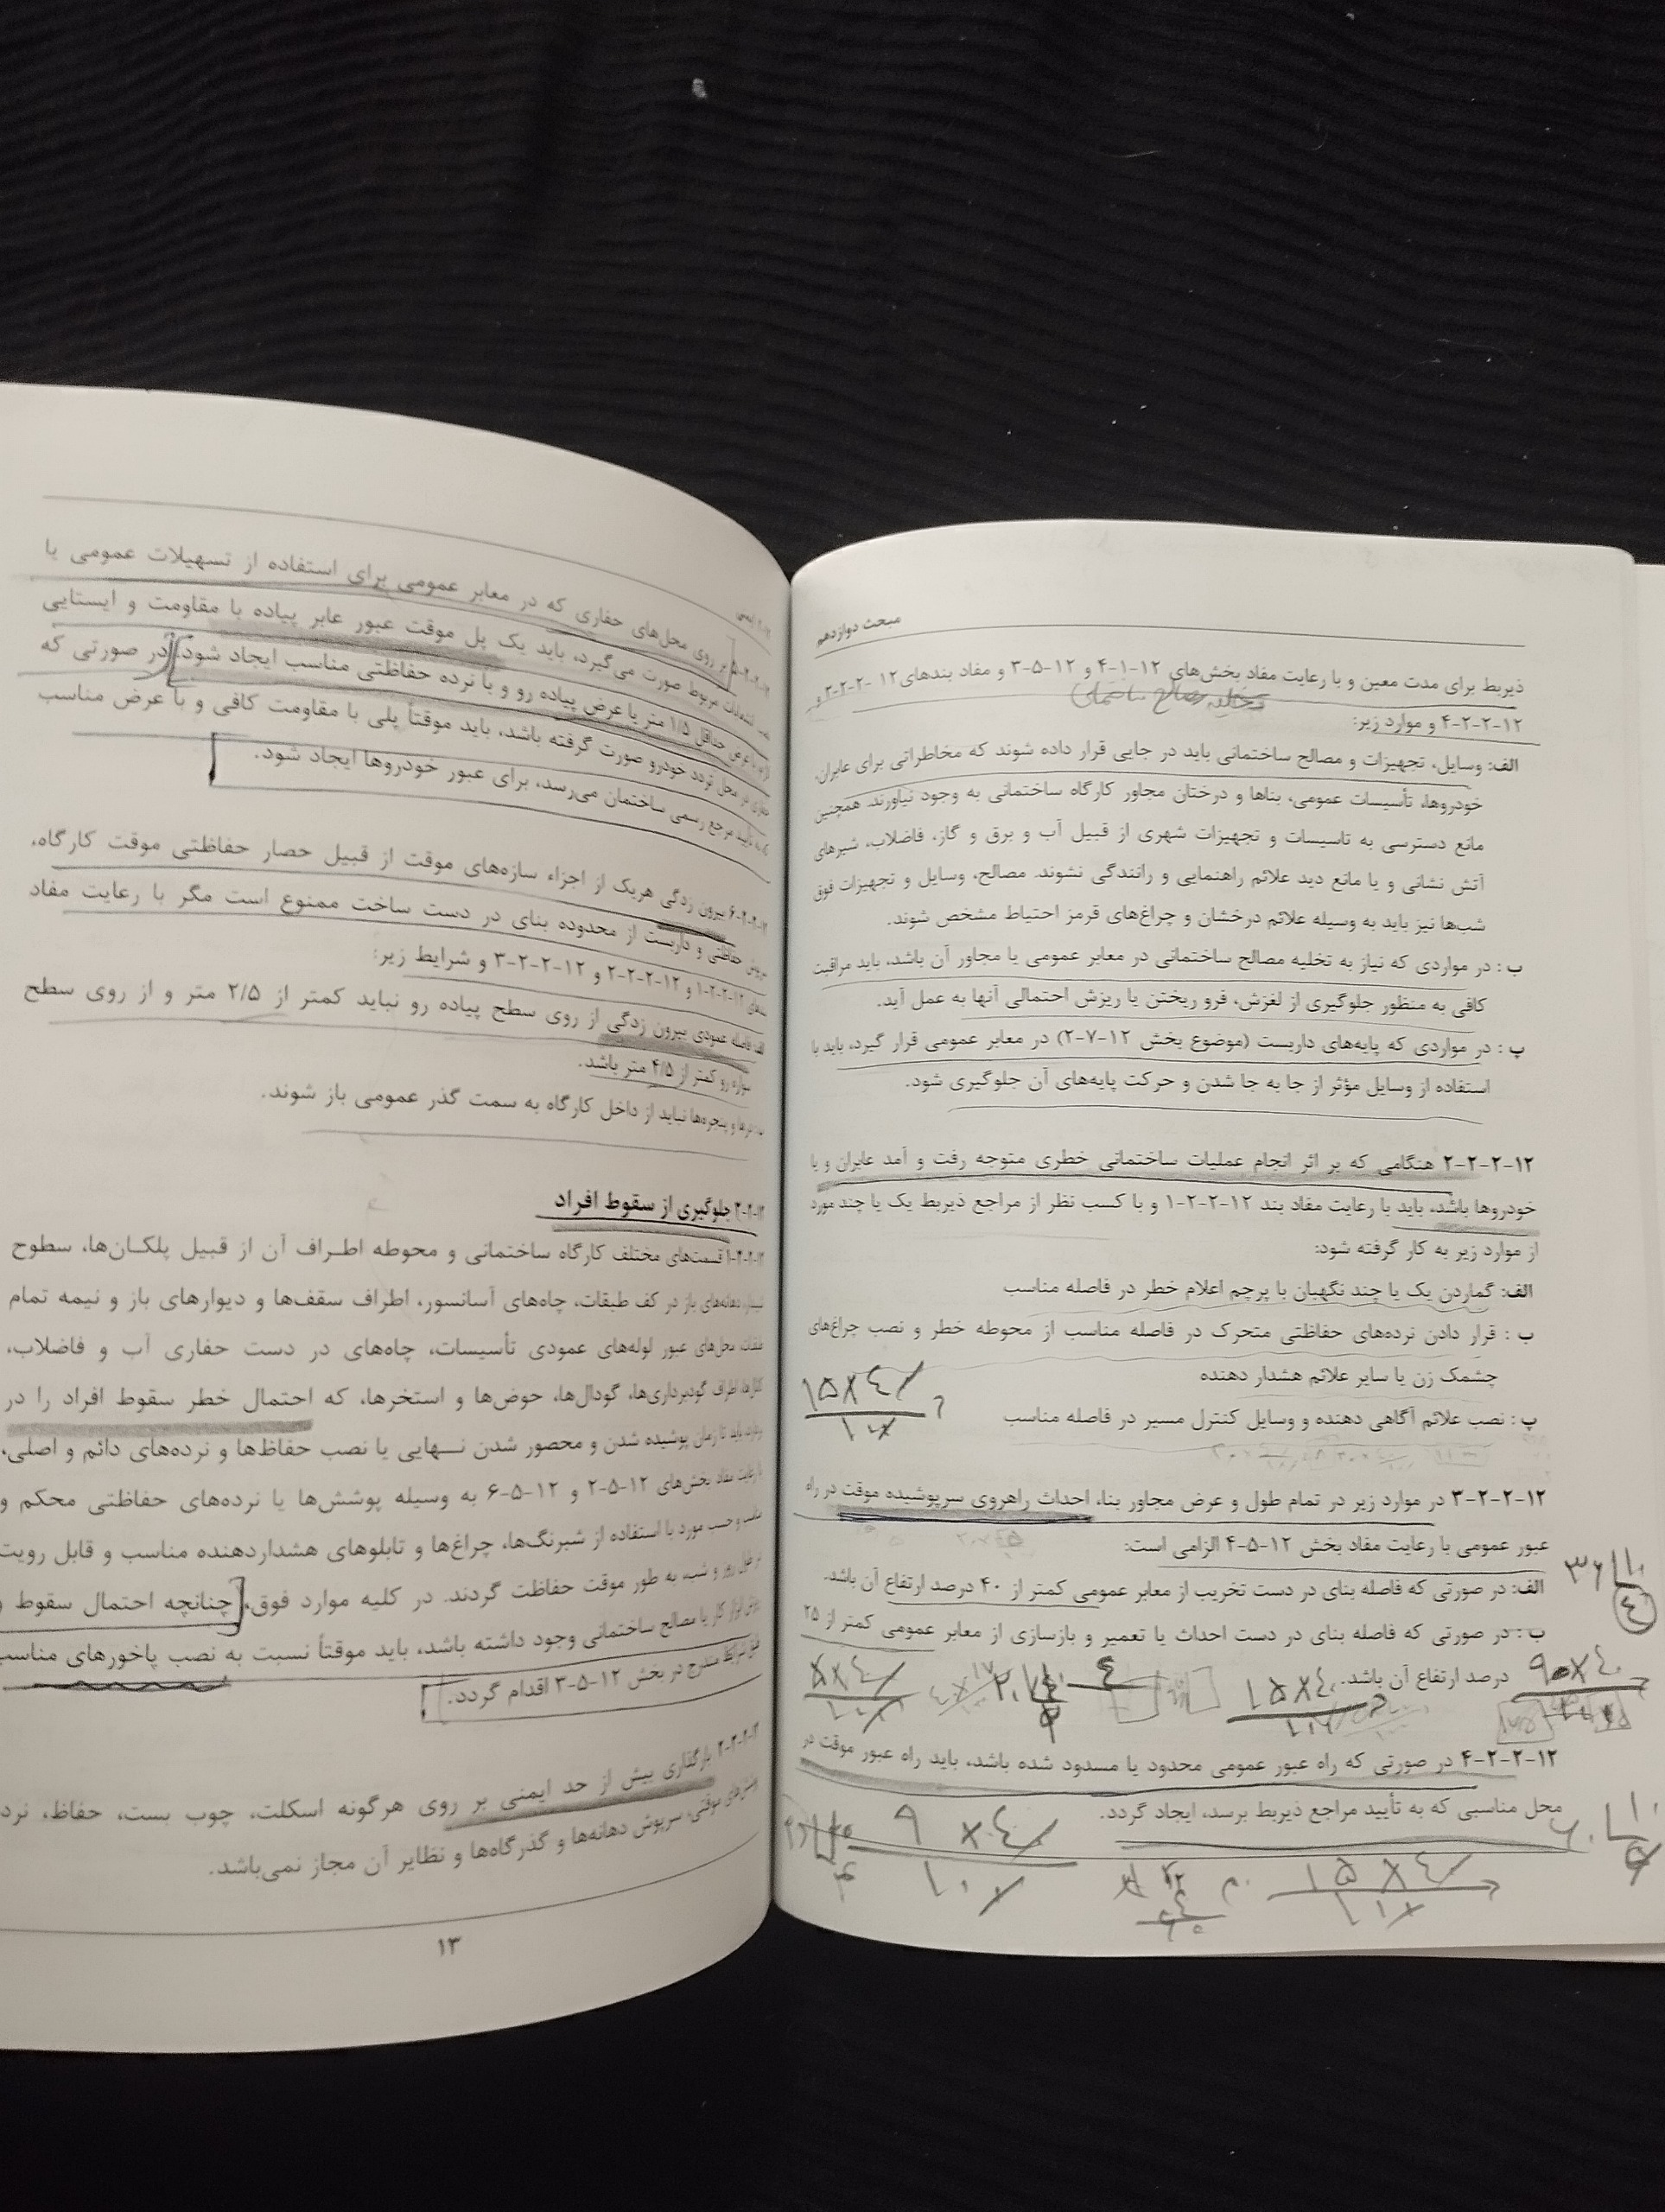 مبحث دوازدهم
ذیربط برای مدت معین و با رعایت مفاد بخش‌های ۱۲-۱-۴ و ۱۲-۵-۳ و مفاد بندهای ۱۲-۲-۲-۳ و
تخلیه مصالح ساختمانی
۱۲-۲-۲-۴ و موارد زیر:
الف: وسایل، تجهیزات و مصالح ساختمانی باید در جایی قرار داده شوند که مخاطراتی برای عابران،
خودروها، تأسیسات عمومی، بناها و درختان مجاور کارگاه ساختمانی به وجود نیاورند. همچنین
مانع دسترسی به تاسیسات و تجهیزات شهری از قبیل آب و برق و گاز، فاضلاب، شیرهای
آتش نشانی و یا مانع دید علائم راهنمایی و رانندگی نشوند. مصالح، وسایل و تجهیزات فوق
شب‌ها نیز باید به وسیله علائم درخشان و چراغ‌های قرمز احتیاط مشخص شوند.
ب : در مواردی که نیاز به تخلیه مصالح ساختمانی در معابر عمومی یا مجاور آن باشد، باید مراقبت
کافی به منظور جلوگیری از لغزش، فرو ریختن یا ریزش احتمالی آنها به عمل آید.
پ : در مواردی که پایه‌های داربست (موضوع بخش ۱۲-۷-۲) در معابر عمومی قرار گیرد، باید با
استفاده از وسایل مؤثر از جا به جا شدن و حرکت پایه‌های آن جلوگیری شود.
۱۲-۲-۲-۲ هنگامی که بر اثر انجام عملیات ساختمانی خطری متوجه رفت و آمد عابران و یا
خودروها باشد، باید با رعایت مفاد بند ۱۲-۲-۲-۱ و با کسب نظر از مراجع ذیربط یک یا چند مورد
از موارد زیر به کار گرفته شود:
الف: گماردن یک یا چند نگهبان با پرچم اعلام خطر در فاصله مناسب
ب : قرار دادن نرده‌های حفاظتی متحرک در فاصله مناسب از محوطه خطر و نصب چراغ‌های
چشمک زن یا سایر علائم هشدار دهنده
پ : نصب علائم آگاهی دهنده و وسایل کنترل مسیر در فاصله مناسب
۱۲-۲-۲-۳ در موارد زیر در تمام طول و عرض مجاور بنا، احداث راهروی سرپوشیده موقت در راه
عبور عمومی با رعایت مفاد بخش ۱۲-۵-۴ الزامی است:
الف: در صورتی که فاصله بنای در دست تخریب از معابر عمومی کمتر از ۴۰ درصد ارتفاع آن باشد.
ب : در صورتی که فاصله بنای در دست احداث یا تعمیر و بازسازی از معابر عمومی کمتر از ۲۵
درصد ارتفاع آن باشد.
۱۲-۲-۲-۴ در صورتی که راه عبور عمومی محدود یا مسدود شده باشد، باید راه عبور موقت در
محل مناسبی که به تأیید مراجع ذیربط برسد، ایجاد گردد.
۱۲-۲-۲-۵ بر روی محل‌های حفاری که در معابر عمومی برای استفاده از تسهیلات عمومی یا
انشعابات مربوط صورت می‌گیرد، باید یک پل موقت عبور عابر پیاده با مقاومت و ایستایی
با عرض حداقل ۱/۵ متر یا عرض پیاده رو و با نرده حفاظتی مناسب ایجاد شود. در صورتی که
حفاری در محل تردد خودرو صورت گرفته باشد، باید موقتاً پلی با مقاومت کافی و با عرض مناسب
که به تأیید مرجع رسمی ساختمان می‌رسد، برای عبور خودروها ایجاد شود.
۱۲-۲-۲-۶ بیرون زدگی هریک از اجزاء سازه‌های موقت از قبیل حصار حفاظتی موقت کارگاه،
حفاظتی و داربست از محدوده بنای در دست ساخت ممنوع است مگر با رعایت مفاد
بندهای ۱۲-۲-۲-۱ و ۱۲-۲-۲-۲ و ۱۲-۲-۲-۳ و شرایط زیر:
الف: فاصله عمودی بیرون زدگی از روی سطح پیاده رو نباید کمتر از ۲/۵ متر و از روی سطح
سواره رو کمتر از ۴/۵ متر باشد.
درها و پنجره‌ها نباید از داخل کارگاه به سمت گذر عمومی باز شوند.
جلوگیری از سقوط افراد
قسمت‌های مختلف کارگاه ساختمانی و محوطه اطـراف آن از قبیل پلکـان‌ها، سطوح
دهانه‌های باز در کف طبقات، چاه‌های آسانسور، اطراف سقف‌ها و دیوارهای باز و نیمه تمام
طبقات، محل‌های عبور لوله‌های عمودی تأسیسات، چاه‌های در دست حفاری آب و فاضلاب،
کانال‌ها، اطراف گودبرداری‌ها، گودال‌ها، حوض‌ها و استخرها، که احتمال خطر سقوط افراد را در
باید تا زمان پوشیده شدن و محصور شدن نـــهایی یا نصب حفاظ‌ها و نرده‌های دائم و اصلی،
با رعایت مفاد بخش‌های ۱۲-۵-۲ و ۱۲-۵-۶ به وسیله پوشش‌ها یا نرده‌های حفاظتی محکم و
مناسب و حسب مورد با استفاده از شبرنگ‌ها، چراغ‌ها و تابلوهای هشداردهنده مناسب و قابل رویت
در طول روز و شب، به طور موقت حفاظت گردند. در کلیه موارد فوق، چنانچه احتمال سقوط
ابزار کار یا مصالح ساختمانی وجود داشته باشد، باید موقتاً نسبت به نصب پاخورهای مناسب
طبق شرایط مندرج در بخش ۱۲-۵-۳ اقدام گردد.
بارگذاری بیش از حد ایمنی بر روی هرگونه اسکلت، چوب بست، حفاظ، نرده
موقتی، سرپوش دهانه‌ها و گذرگاه‌ها و نظایر آن مجاز نمی‌باشد.
۱۳